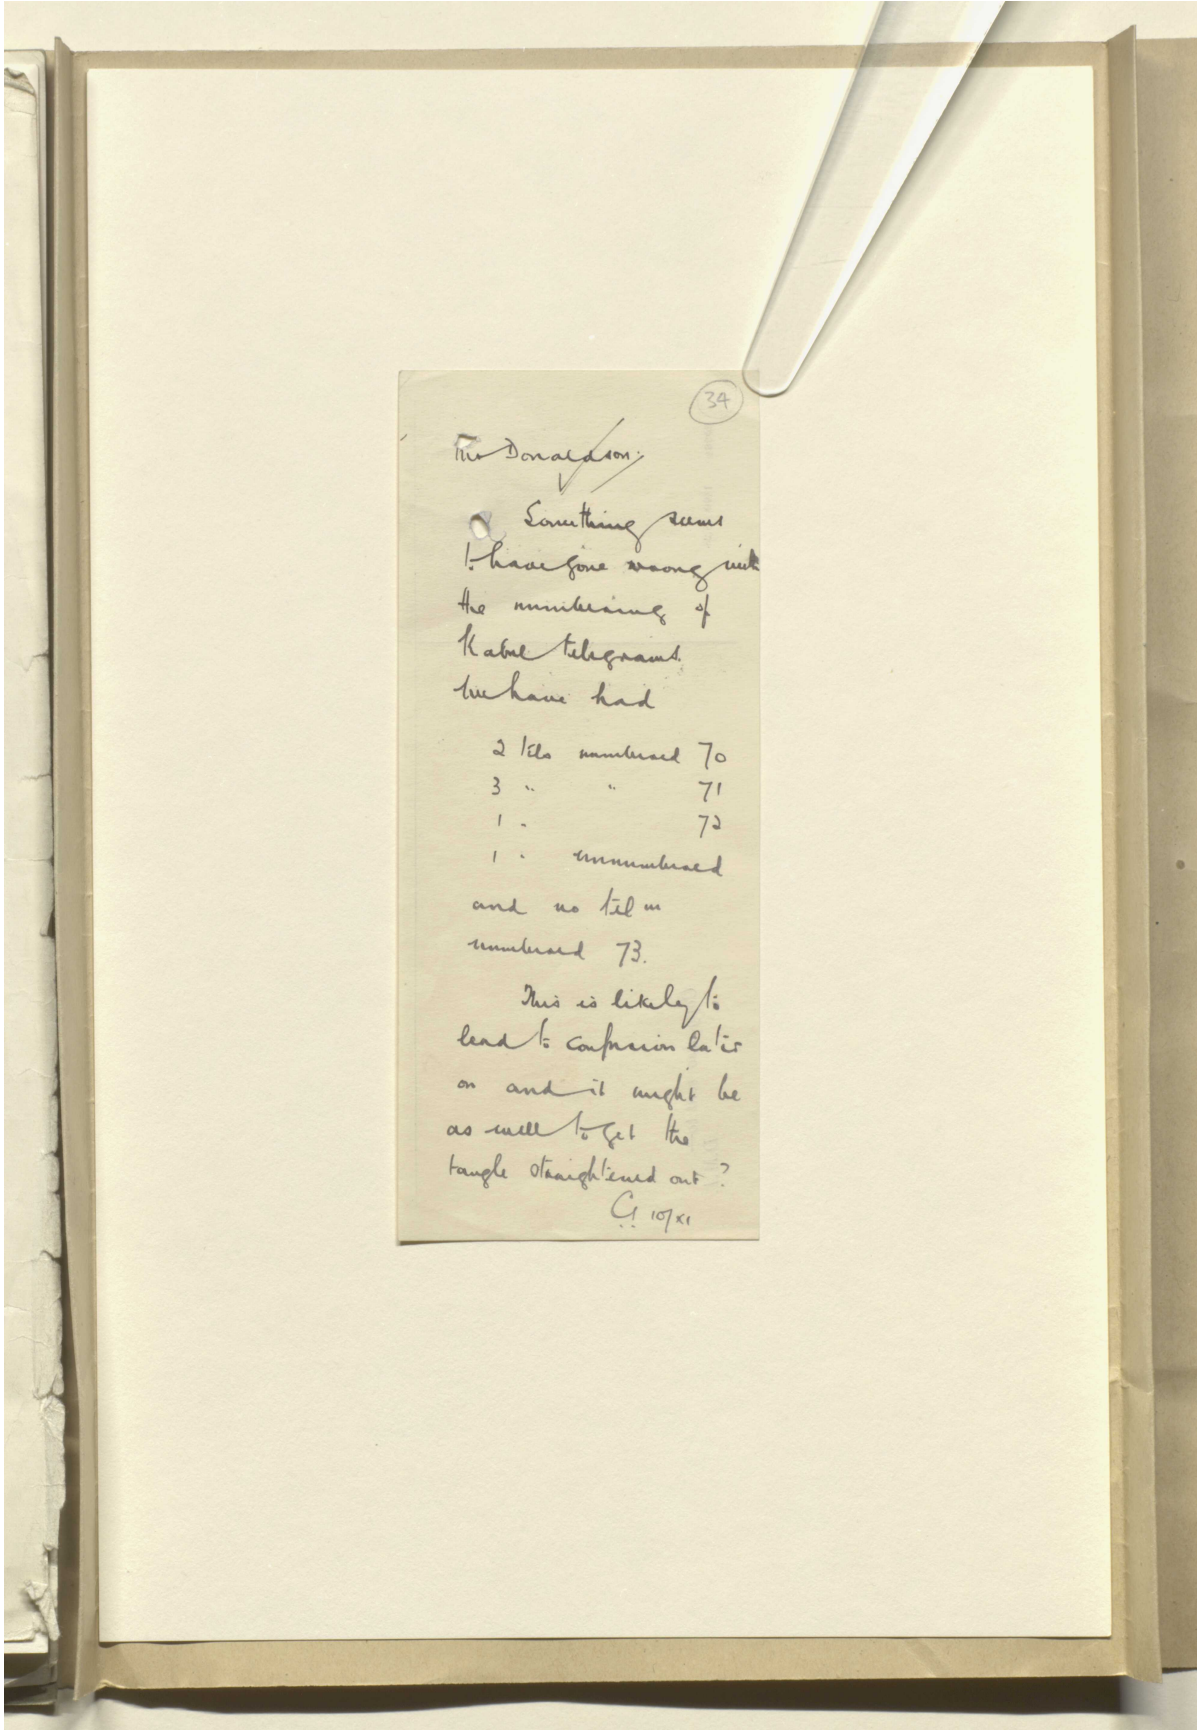 34
Mr Donaldson.
Something seems
to have gone wrong with
the numbering of
Kabul telegrams.
We have had
2 tels numbered 70
3 " " 71
1 " 72
1 " unnumbered
and no telm
numbered 73.
This is likely to
lead to confusion later
on and it might be
as well to get the
tangle straightened out?
10/XI